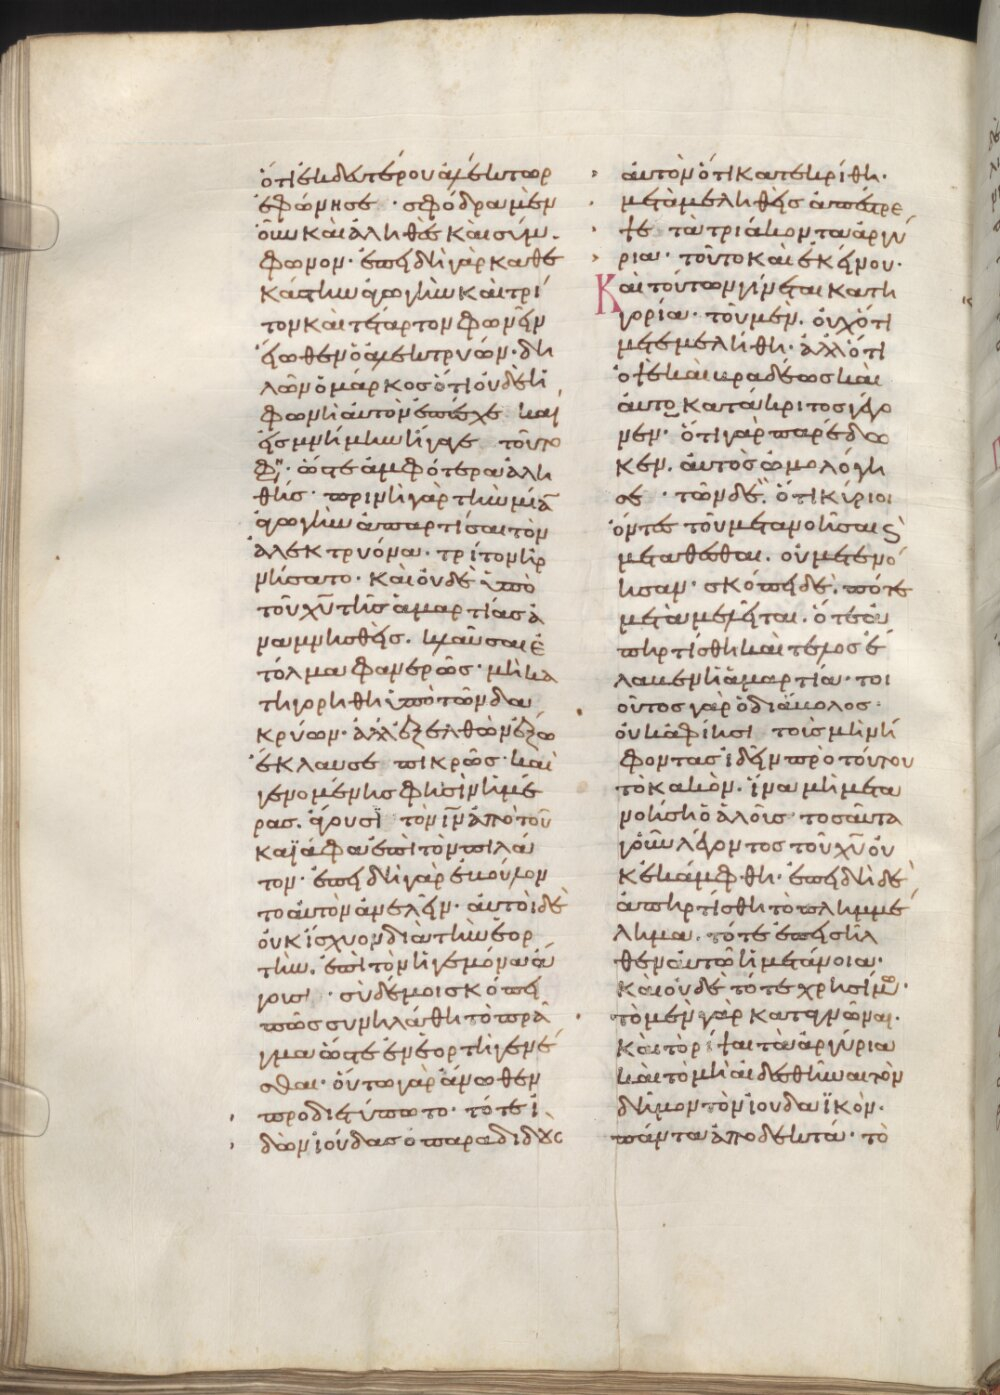 ὅτι ἐκ δευτέρου ἀλέκτωρ
ἐφώνησε · σφόδρα μὲν
οὖν καὶ ἀληθὲς καὶ σύμ
φωνον · ἐπειδὴ γὰρ καθ ἑ
κάστην ἀγωγὴν καὶ τρί
τον καὶ τέταρτον φωνεῖν
εἴωθεν ὁ ἀλεκτρυών · δη
λῶν ὁ μάρκος ὅτι οὐδὲ ἡ
φωνὴ αὐτὸν ἐπέσχε καὶ
εἰς μνήμην ἤγαγε τοῦτό
φησιν · ὥστε ἀμφότερα ἀλη
θῆ · πρινὴ γὰρ τὴν μίαν
ἀγωγὴν ἀπαρτίσαι τὸν
ἀλεκτρυόνα · τρίτον ἠρ
νήσατο · καὶ οὐδὲ ὑπὸ
τοῦ χῦ τῆς ἁμαρτίας ἀ
ναμνησθεὶς · κλαῦσαι ἐ
τόλμα φανερῶς · μὴ κα
τηγορηθῆ ὑπὸ τῶν δα
κρύων · ἀλλ ἐξελθὼν ἔξω
ἔκλαυσε πικρῶς · καὶ
γενομένης φησὶν ἡμέ
ρας · ἄγουσι τὸν ιν ἀπὸ τοῦ
καϊάφα ἐπὶ τὸν πιλά
τον · ἐπειδὴ γὰρ ἐβούλον
το αὐτὸν ἀνελεῖν · αὐτοὶ δὲ
οὐκ ἴσχυον διὰ τὴν ἑορ
τὴν · ἐπὶ τὸν ἡγεμόνα ἄ
γουσι · σὺ δέ μοι σκόπει
πῶς συνηλάθη τὸ πρᾶ
γμα ὥστε ἐν ἑορτῆ γενέ
σθαι · οὕτω γὰρ ἄνωθεν
προδιετύπωτο · τότε ἰ
δὼν ἰούδας ὁ παραδιδοὺς
αὐτὸν ὅτι κατεκρίθη ·
μεταμεληθεὶς ἀπέστρε
ψε τὰ τριάκοντα ἀργύ
ρια · τοῦτο καὶ ἐκείνου ·
Καὶ τούτων γίνεται κατη
γορία · τοῦ μὲν · οὐχ ὅτι
μετεμελήθη · ἀλλ ὅτι
ὀψὲ καὶ βραδέως καὶ
αὐτοκατάκριτος γέγο
νεν · ὅτι γὰρ παρέδω
κεν · αὐτὸς ὡμολόγη
σε · τῶν δὲ · ὅτι κύριοι
ὄντες τοῦ μετανοῆσαι καὶ
μεταθέσθαι · οὐ μετενό
ησαν · σκόπει δὲ · πότε
μεταμελεῖται · ὅτε ἀ
πηρτίσθη καὶ τέλος ἔ
λαβεν ἡ ἁμαρτία · τοι
οῦτος γὰρ ὁ διάβολος ·
οὐκ ἀφίησι τοῖς μὴ νή
φουσιν ἰδεῖν πρὸ τούτου
τὸ κακὸν · ἵνα μὴ μετα
νοήση ὁ ἁλοὺς · τοσαῦτα
γοῦν λέγοντος τοῦ χῦ οὐ
κ ἐκάμφθη · ἐπειδὴ δὲ
ἀπηρτίσθη τὸ πλημμέ
λημα · τότε ἐπεισῆλ
θεν αὐτῶ ἡ μετάνοια ·
καὶ οὐδὲ τότε χρησίμως ·
τὸ μὲν γὰρ καταγνῶναι ·
καὶ τὸ ρίψαι τὰ ἀργύρια
καὶ τὸ μὴ αἰδεσθῆναι τὸν
δῆμον τὸν ἰουδαϊκὸν ·
πάντα ἀποδεκτά · τὸ